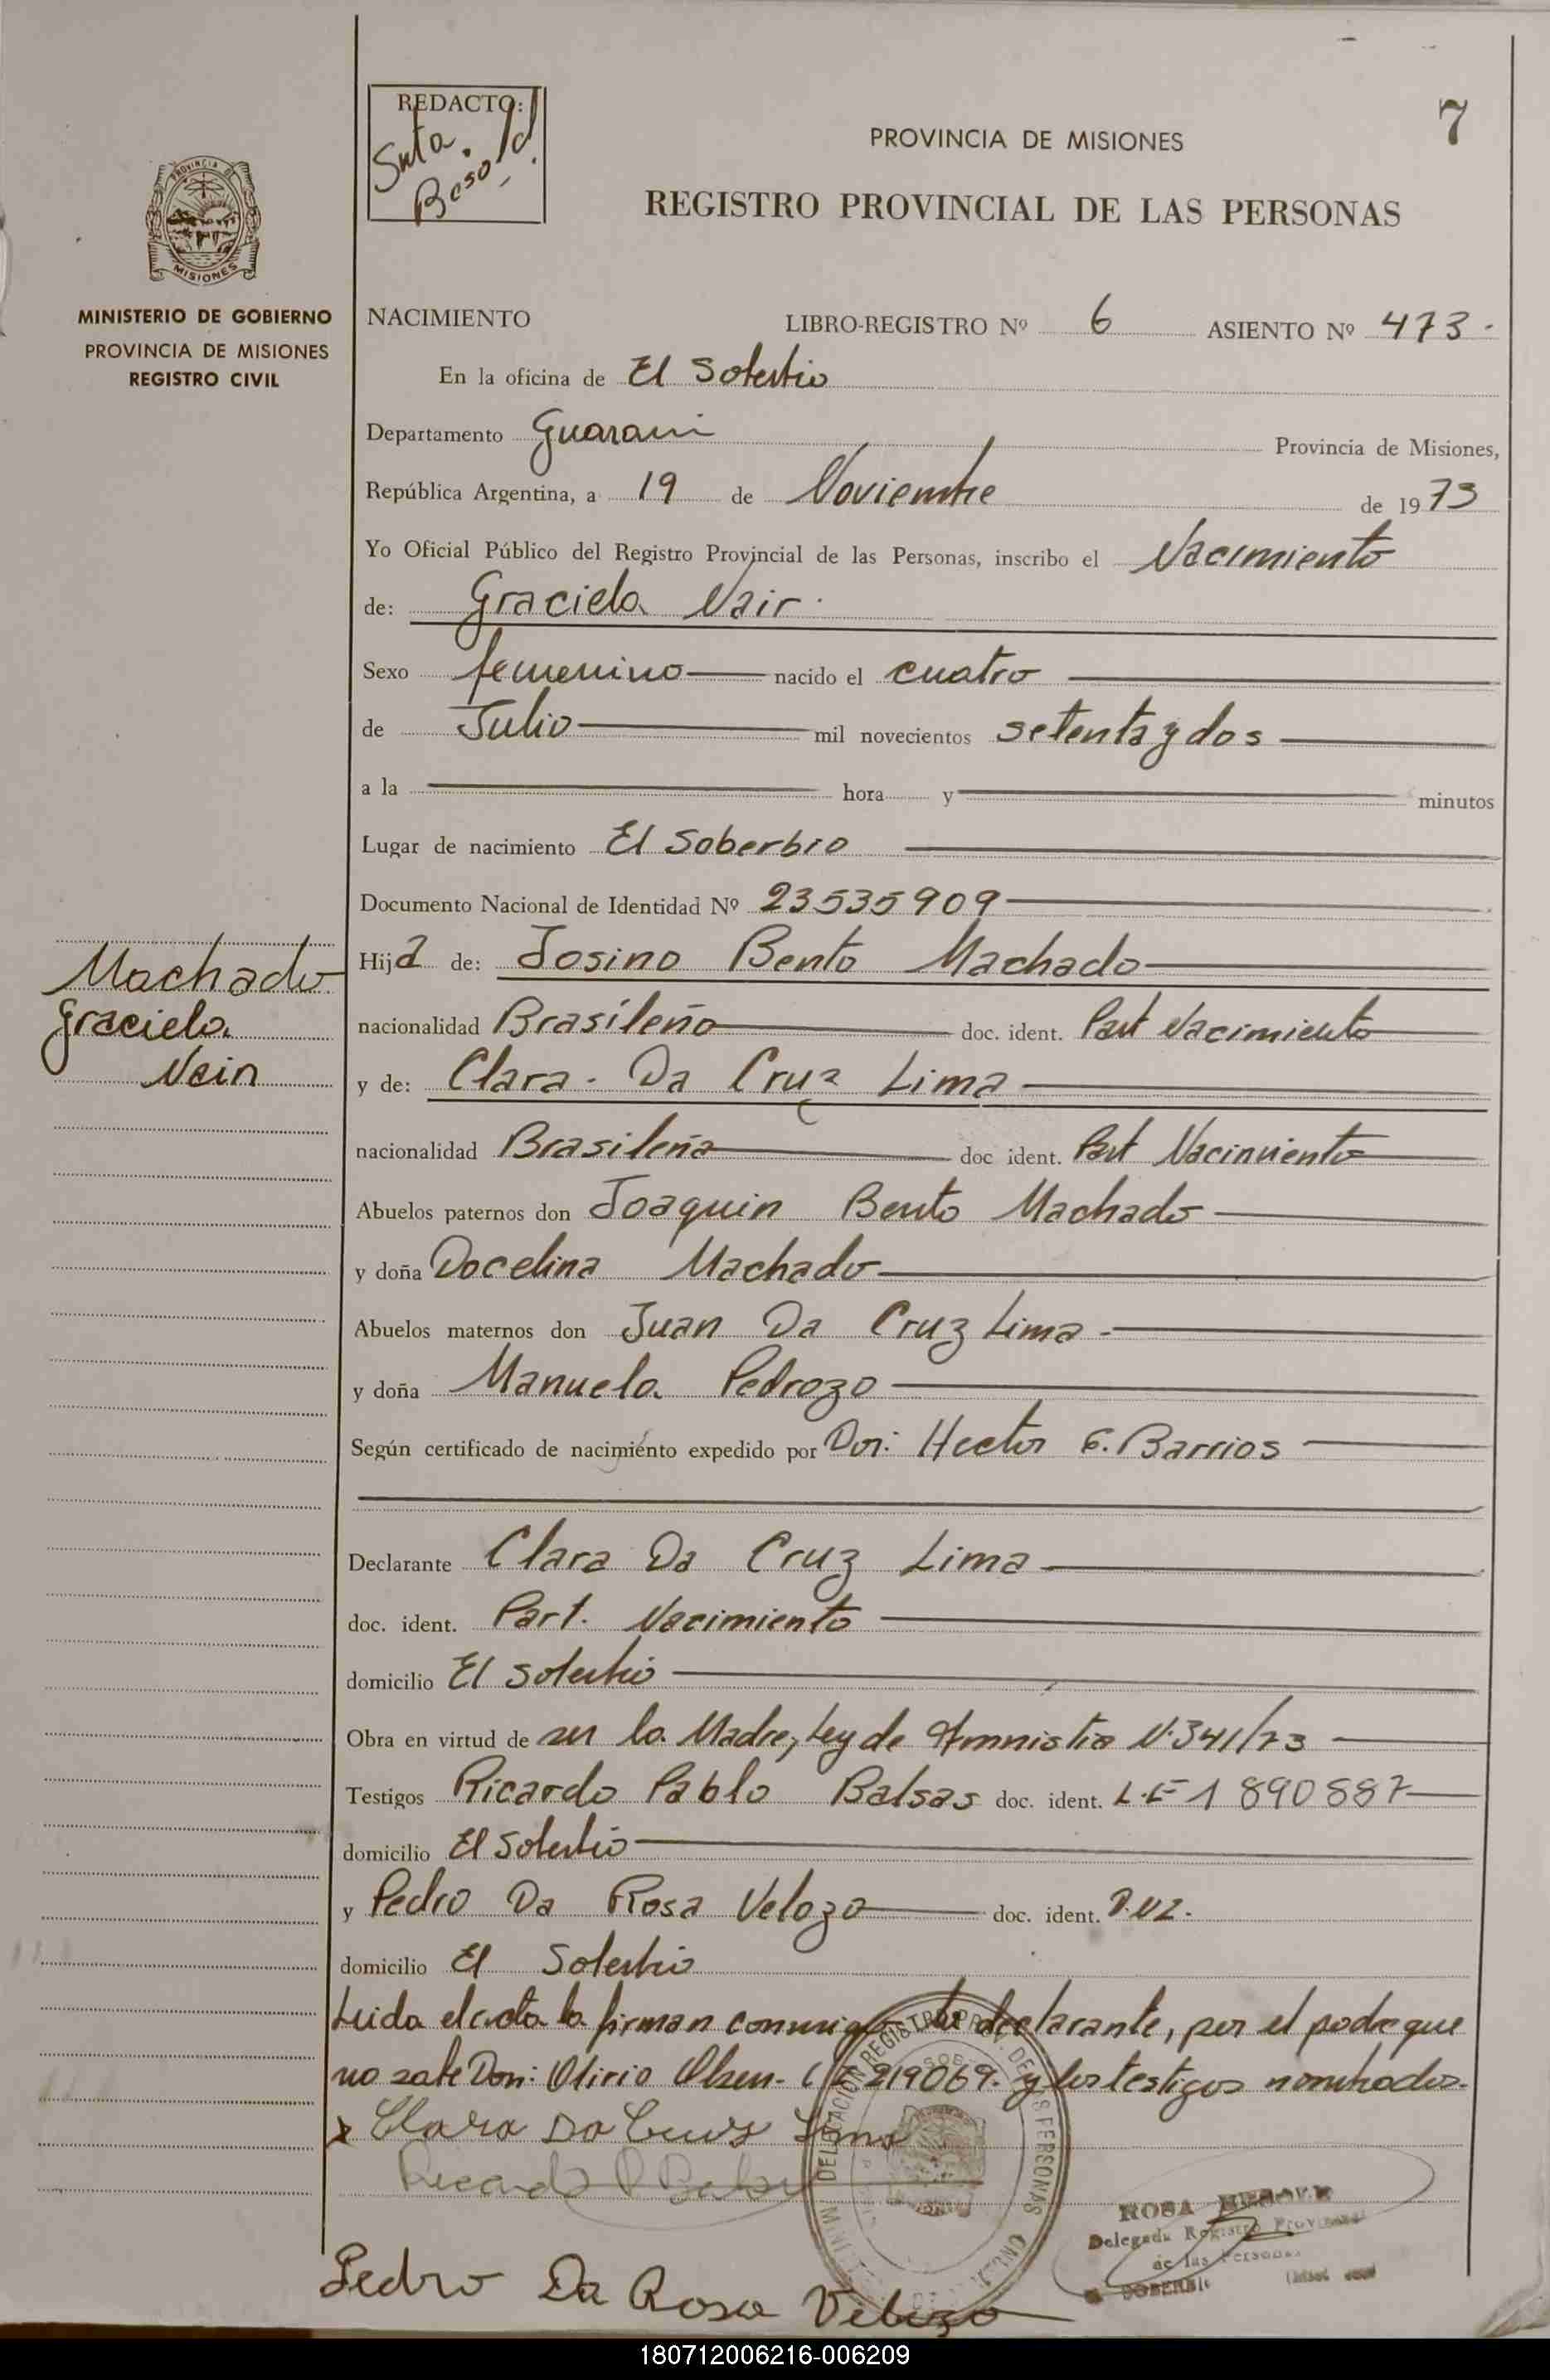 REDACTO:
7
PROVINCIA DE MISIONES
REGISTRO PROVINCIAL DE LAS PERSONAS
PROVINCIA DE
MISIONES
MINISTERIO DE GOBIERNO
PROVINCIA DE MISIONES
REGISTRO CIVIL
NACIMIENTO LIBRO-REGISTRO Nº 6 ASIENTO Nº 473.
En la oficina de El Soberbio
Departamento Guarani Provincia de Misiones,
República Argentina, a 19 de Noviembre de 1973
Yo Oficial Público del Registro Provincial de las Personas, inscribo el Nacimiento
de: Graciela Nair.
Sexo femenino nacido el cuatro
de Julio mil novecientos setenta y dos
a la hora y minutos
Lugar de nacimiento El Soberbio
Documento Nacional de Identidad Nº 23535909
Machado
Graciela
Nair
Hija de: Josino Bento Machado
nacionalidad Brasileño doc. ident. Part Nacimiento
y de: Clara. Da Cruz Lima
nacionalidad Brasileña doc ident. Part Nacimiento
Abuelos paternos don Joaquin Bento Machado
y doña Docelina Machado
Abuelos maternos don Juan Da Cruz Lima.
y doña Manuela Pedrozo
Según certificado de nacimiento expedido por Don: Hector E. Barrios
Declarante Clara Da Cruz Lima
doc. ident. Part. Nacimiento
domicilio El Soberbio
Obra en virtud de ser la Madre, Ley de Amnistia N.341/73
Testigos Ricardo Pablo Balsas doc. ident. L.E 1890887
domicilio El Soberbio
y Pedro Da Rosa Velozo doc. ident.
domicilio El Soberbio
Leida el acta la firman conmigo la declarante, por el padre que
no sabe Don: Olirio Olsen. 219069. y los testigos nombrados.
x Clara Da Cruz Lima
Ricardo P Balsas
ROSA
Delegada Registro Provincial
de las Personas
SOBERBIO
Pedro Da Rosa Velozo
180712006216-006209